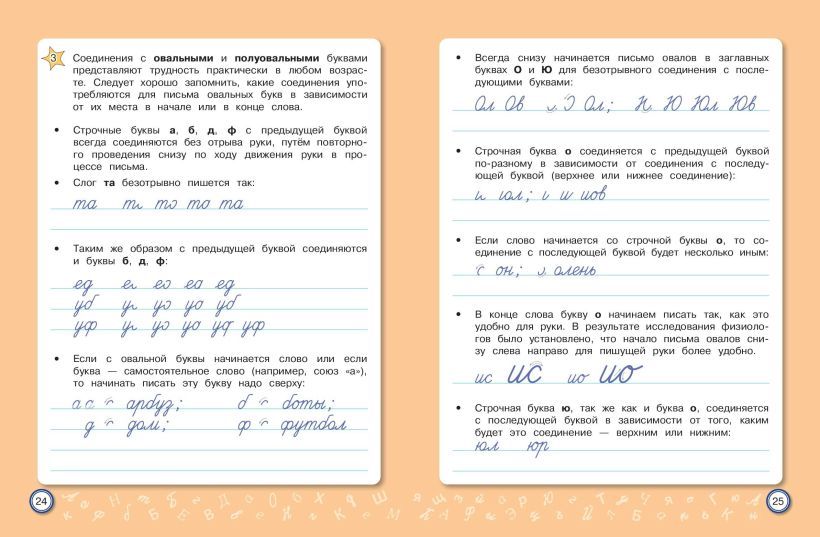 3 Соединения с овальными и полуовальными буквами
представляют трудность практически в любом возрас-
те. Следует хорошо запомнить, какие соединения упо-
требляются для письма овальных букв в зависимости
от их места в начале или в конце слова.
• Строчные буквы а, б, д, ф с предыдущей буквой
всегда соединяются без отрыва руки, путём повторно-
го проведения снизу по ходу движения руки в про-
цессе письма.
• Слог та безотрывно пишется так:
та то та
• Таким же образом с предыдущей буквой соединяются
и буквы б, д, ф:
ед ео еа ед
уб уо уа уб
уф уо уа уф уф
• Если с овальной буквы начинается слово или если
буква — самостоятельное слово (например, союз «а»),
то начинать писать эту букву надо сверху:
а арбуз; б боты;
д дом; ф футбол
24
• Всегда снизу начинается письмо овалов в заглавных
буквах О и Ю для безотрывного соединения с после-
дующими буквами:
Ол Ов Ол; Ю Юл Юв
• Строчная буква о соединяется с предыдущей буквой
по-разному в зависимости от соединения с последу-
ющей буквой (верхнее или нижнее соединение):
иол; иов
• Если слово начинается со строчной буквы о, то со-
единение с последующей буквой будет несколько иным:
он; олень
• В конце слова букву о начинаем писать так, как это
удобно для руки. В результате исследования физиоло-
гов было установлено, что начало письма овалов сни-
зу слева направо для пишущей руки более удобно.
ис ис ио ио
• Строчная буква ю, так же как и буква о, соединяется
с последующей буквой в зависимости от того, каким
будет это соединение — верхним или нижним:
юл юр
25